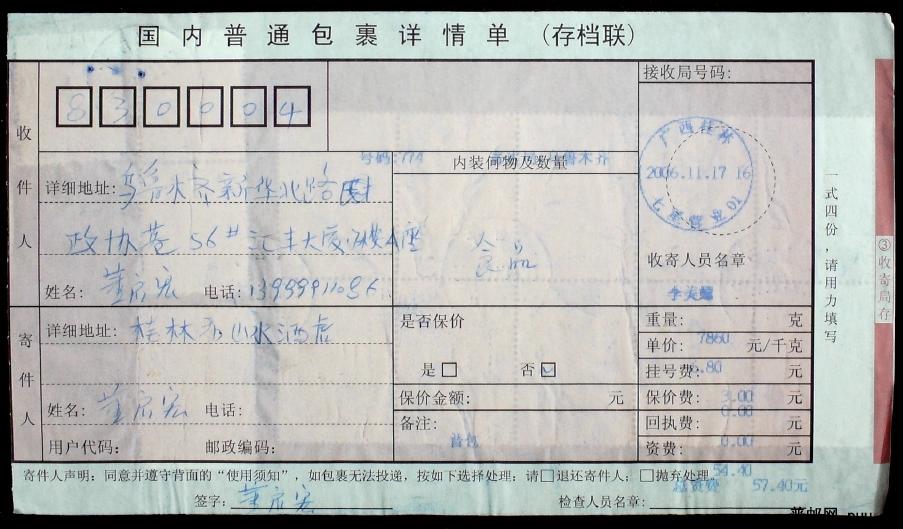 国内普通包裹详情单 (存档联)
接收局号码:
830004
号码: 774
内装何物及数量
收件人
详细地址: 乌鲁木齐新华北路
政协巷 56# 汇丰大厦 A座
食品
姓名: 电话:
广西桂林
2006.11.17 16
收寄人员名章
寄件人
详细地址: 桂林市山水酒店
姓名: 电话:
用户代码: 邮政编码:
是否保价
是□ 否☑
保价金额: 元
备注:
首包
重量: 7860 克
单价: 元/千克
挂号费: 6.80 元
保价费: 3.00 元
回执费: 0.00 元
资费: 0.00 元
54.40
总资费 57.40元
寄件人声明: 同意并遵守背面的“使用须知”, 如包裹无法投递, 按如下选择处理: 请□退还寄件人; □抛弃处理
签字: 检查人员名章:
一式四份,请用力填写
③收寄局存
普邮网